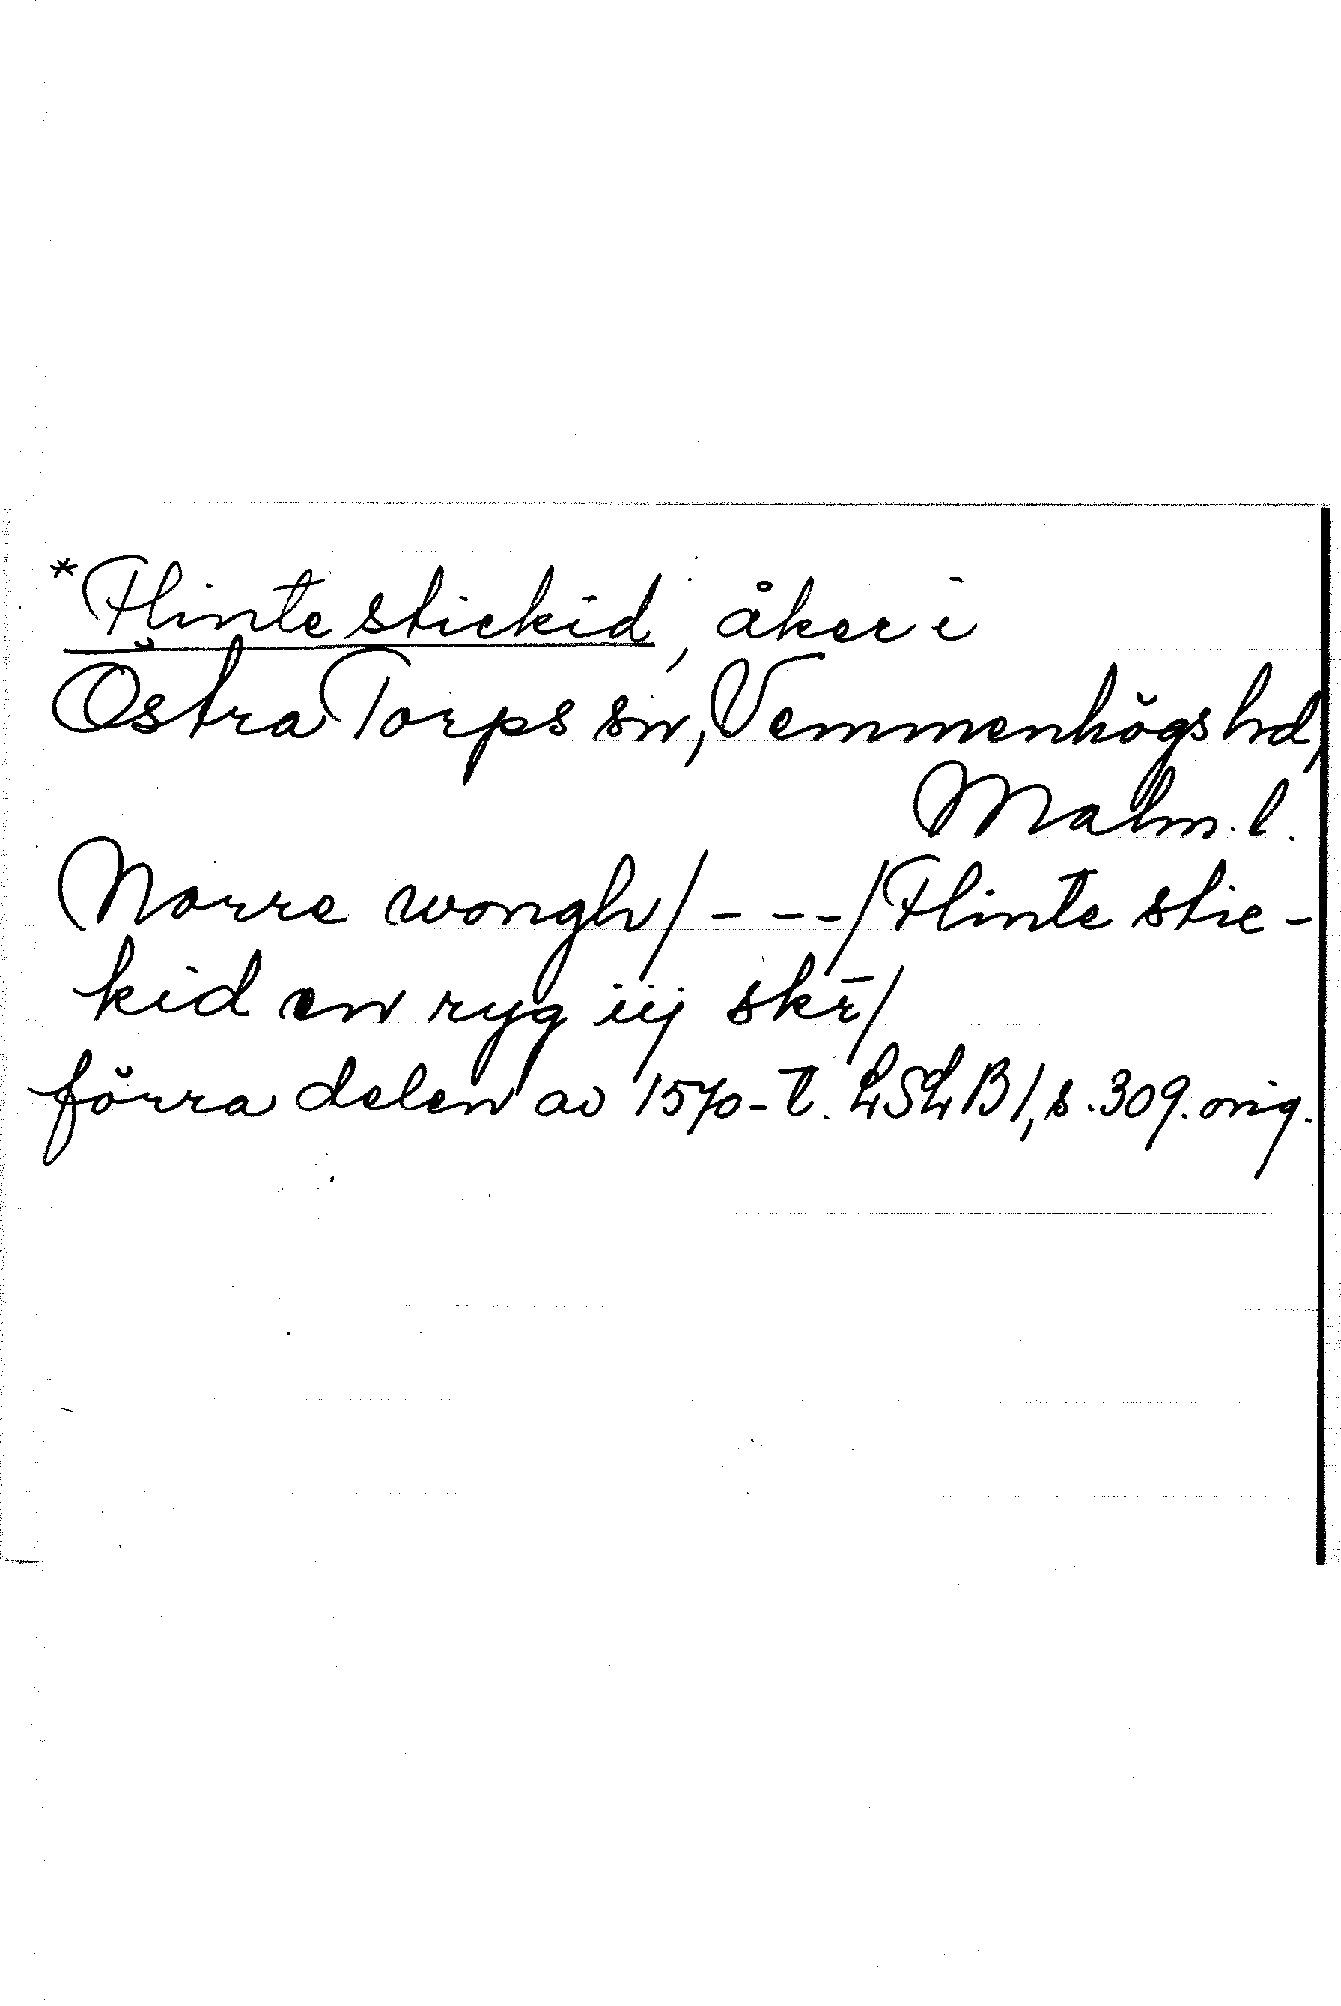 *Flinte stickid, åker i
Östra Torps sn, Vemmenhögs hd,
Malm. l.
Norre wongh/ - - -/Flinte stic-
kid en ryg iij skr̄/
förra delen av 1570-t. LSLB1, s. 309. orig.